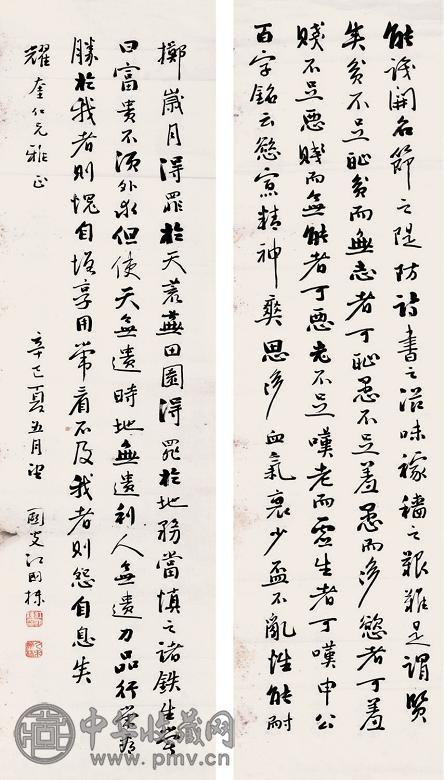 能識閑名節之隄防詩書之滋味稼穡之艱難是謂賢
矣貧不足恥貧而無志者可恥愚不足羞愚而多慾者可羞
賤不足惡賤而無能者可惡老不足嘆老而虛生者可嘆申公
百字銘云慾寡精神爽思多血氣衰少盃不亂性能耐
擲歲月得罪於天荒蕪田園得罪於地務當慎之諸鉄生嘗
曰富貴不須外求但使天無遺時地無遺利人無遺力品行常看
勝於我者則愧自增享用常看不及我者則怨自息矣
耀奎仁兄雅正
辛巳夏五月望 江國棟
中华收藏网
www.pmv.cn